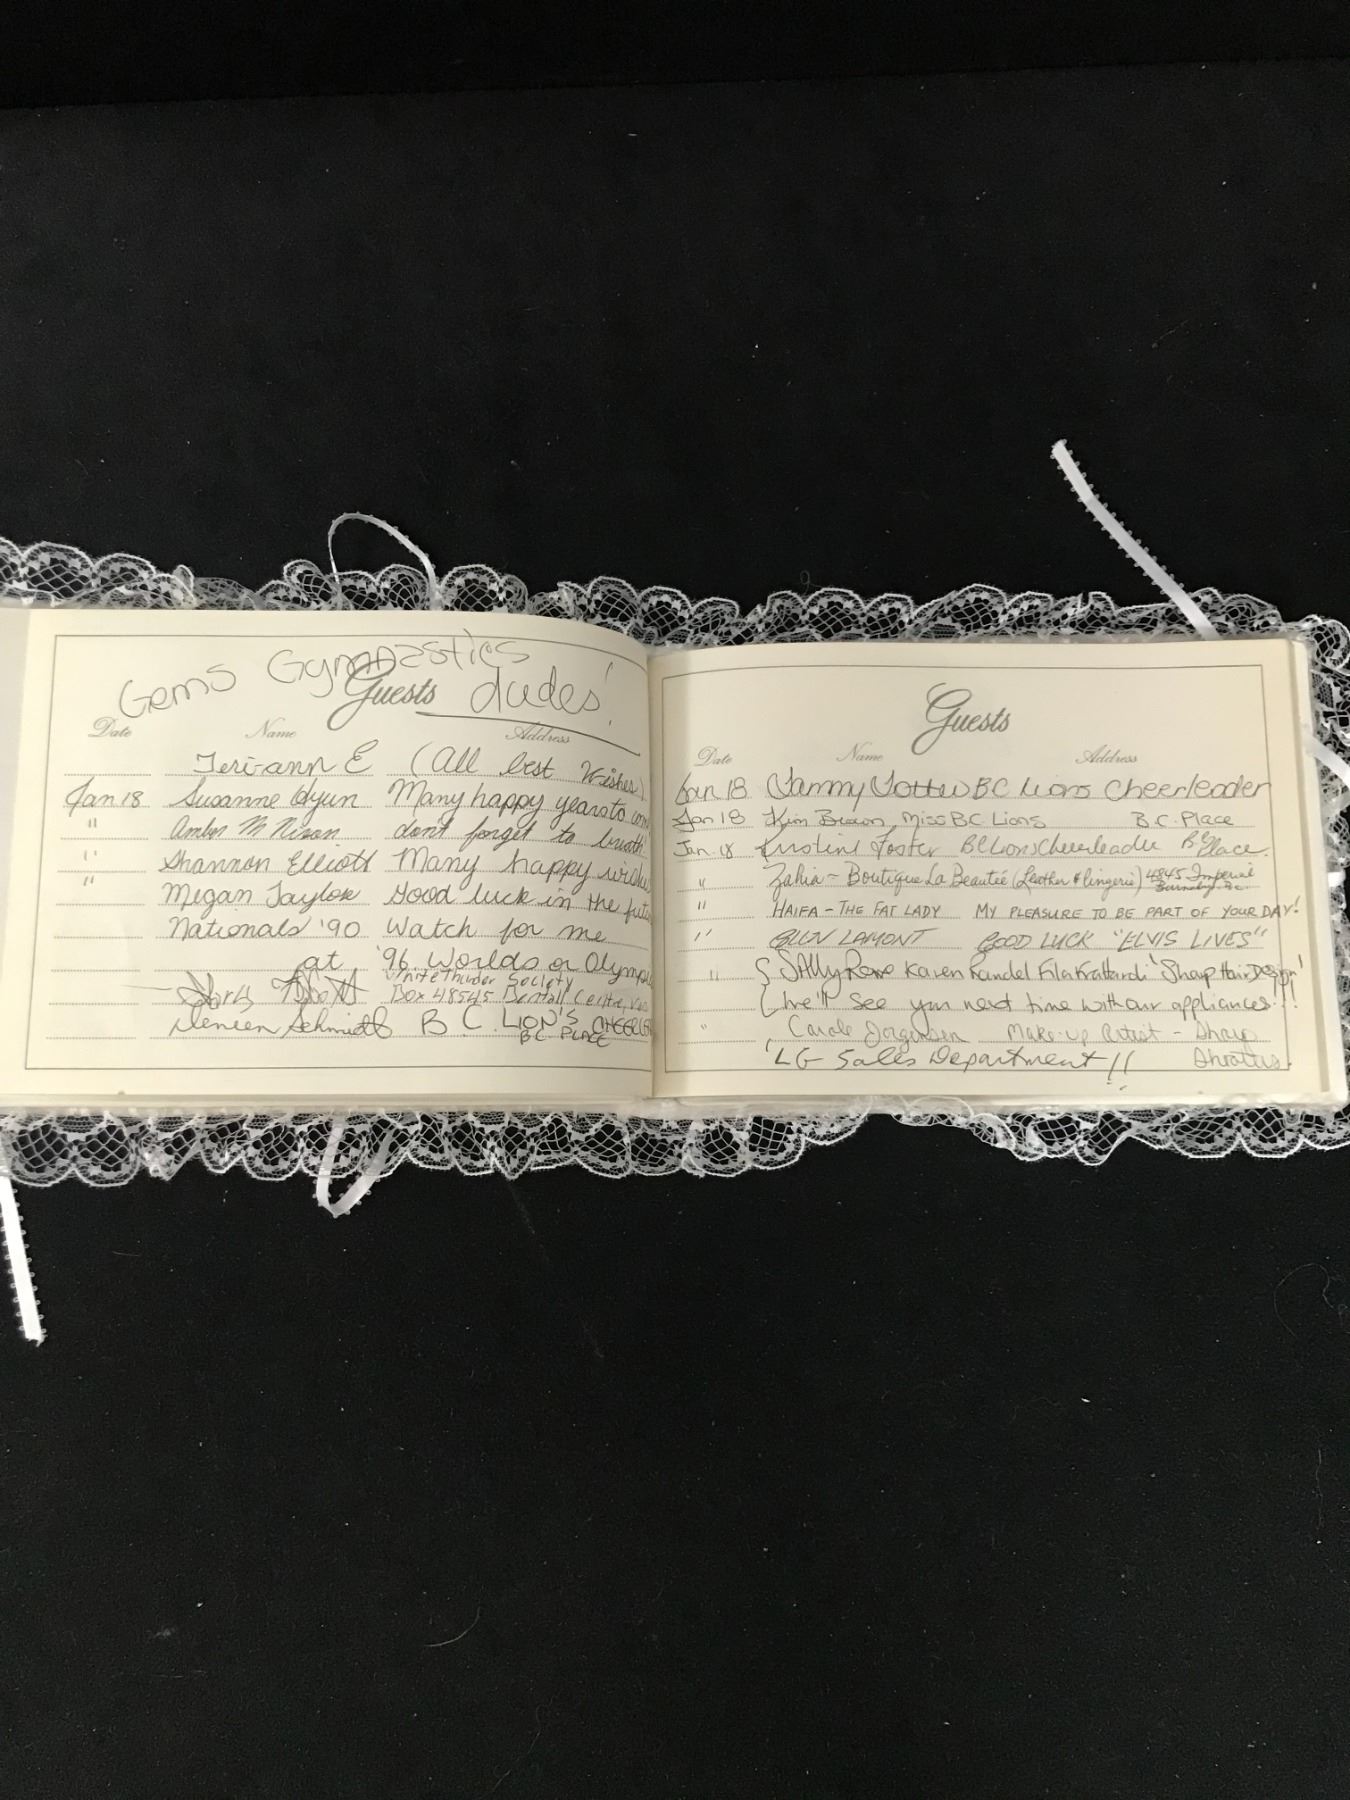 Gems Gymnastics
Guests dudes!
Date Name Address
Teri-ann E (All best Wishes)
Jan 18 Susanne Many happy years to
" Amber M Nixon dont forget to
" Shannon Elliott Many happy
" Megan Taylor Good luck in the
Nationals '90 Watch for me
at '96 Worlds or
White Thunder Society
Box 48545 Bentall Centre,
Schmidt B C LION'S
B.C. PLACE
Guests
Date Name Address
Jan 18 Tammy BC Lions Cheerleader
Jan 18 Kim Brown, Miss BC Lions B.C. Place
Jan. 18 Foster BC Lions Cheerleader BC Place.
" Zahia - Boutique La Beautié (Leather & lingerie) 4845 Imperial
Burnaby
" HAIFA - THE FAT LADY MY PLEASURE TO BE PART OF YOUR DAY!
" LAMONT GOOD LUCK "ELVIS LIVES"
" Sally Rose Karen Randel 'Sharp Hair Design'
We'll See you next time with our appliances!!
" Carole Jorgensen Make-up Artist - Sharp
'LG Sales Department!!